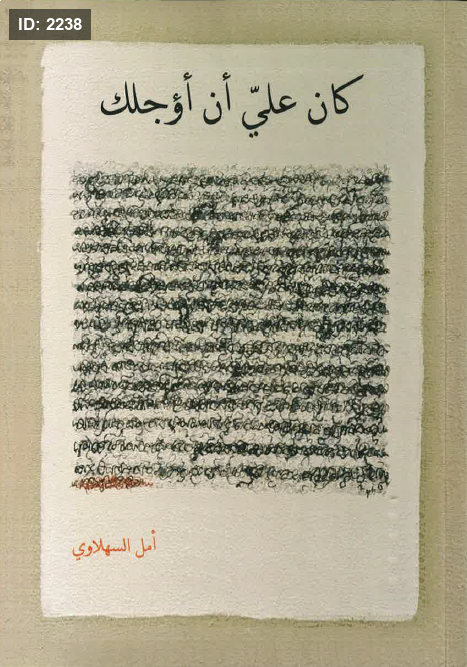 ID: 2238
كان عليّ أن أؤجلك
أمل السهلاوي